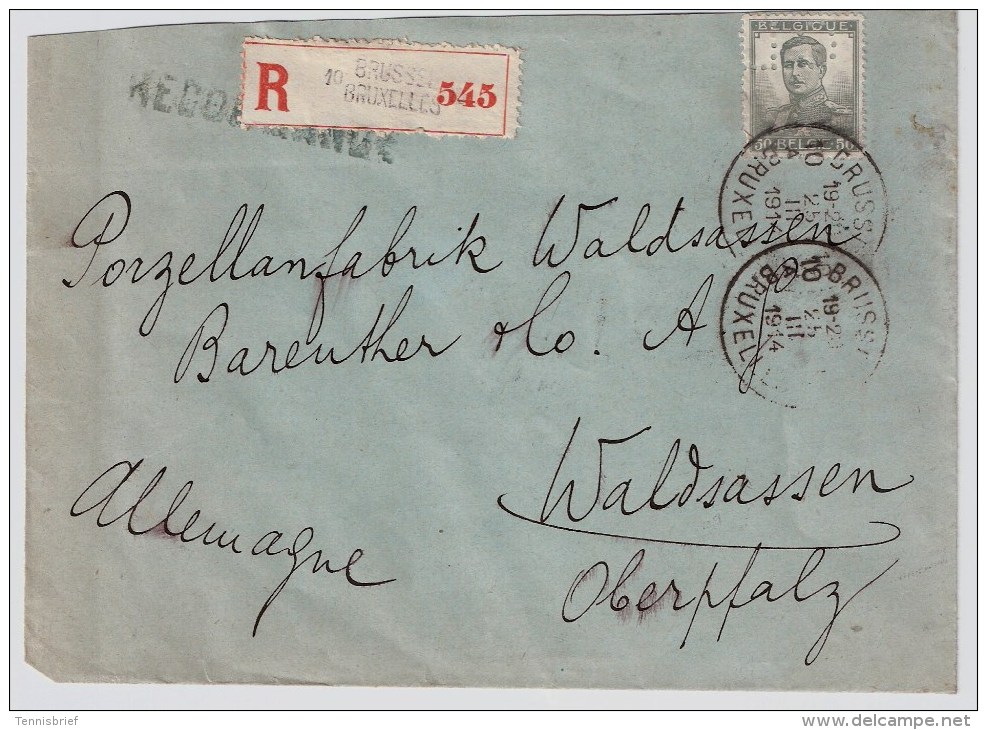 BELGIQUE
50 BELGIE 50
R
BRUSSEL
10
BRUXELLES
545
RECOMMANDÉ
BRUSSEL
10
19-20
25
III
1914
BRUXEL
BRUSSEL
10
19-20
25
III
1914
BRUXEL
Porzellanfabrik Waldsassen
Bareuther & Co. A g
Waldsassen
Oberpfalz
Allemagne
Tennisbrief
delcampe.net